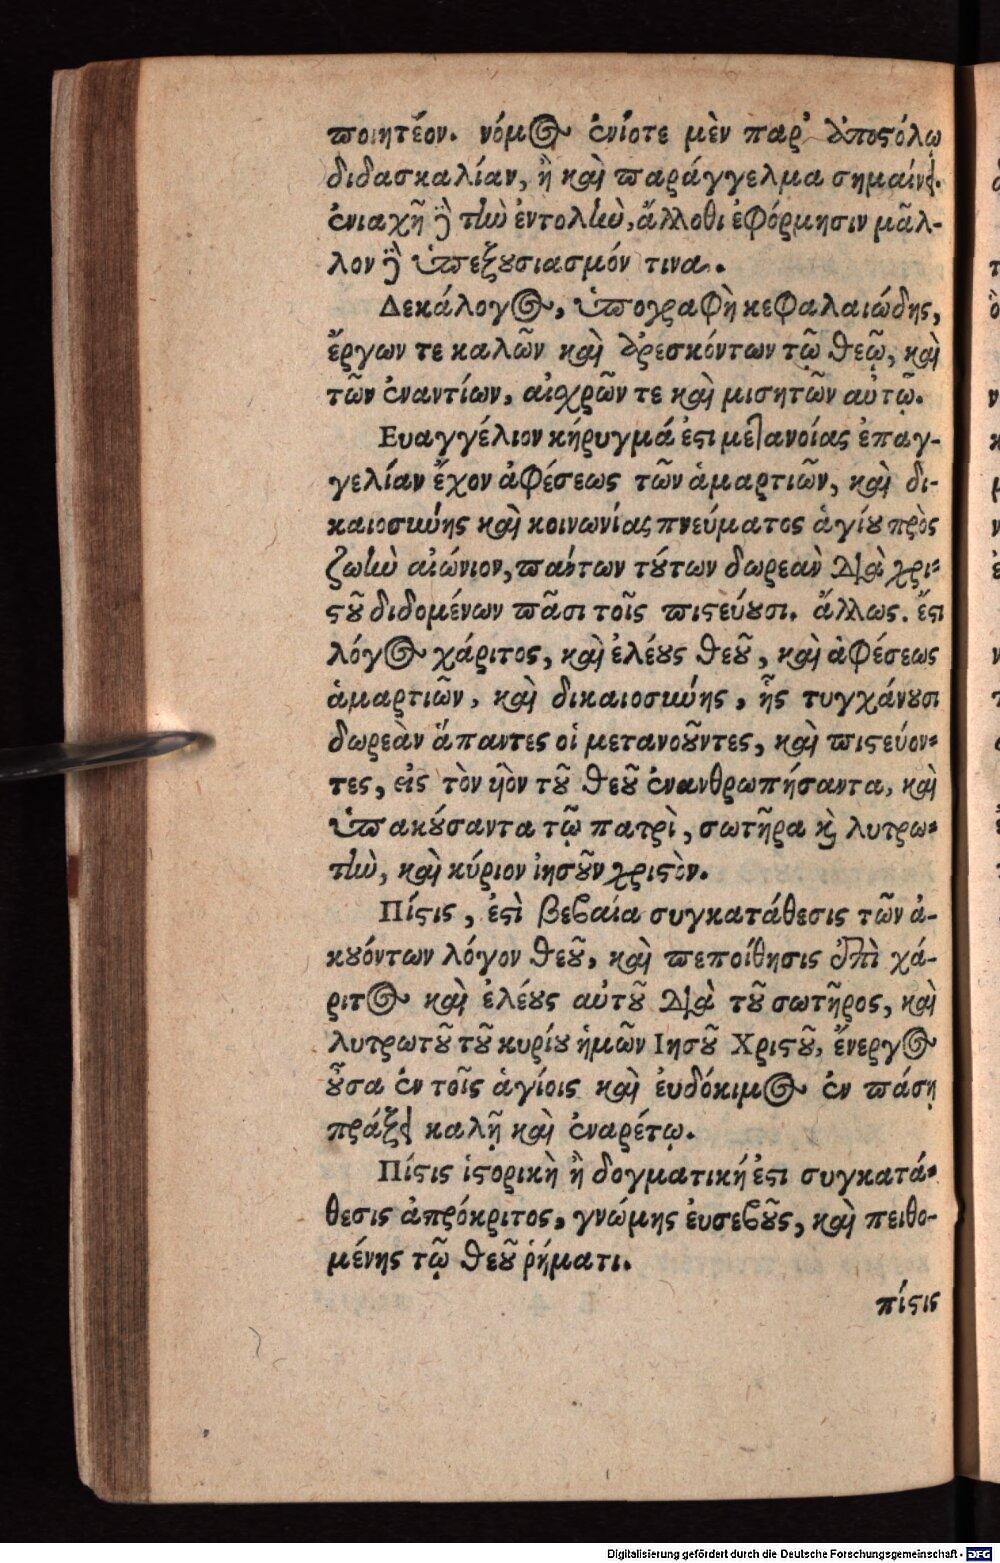 ποιητέον. νόμος ἐνίοτε μὲν παρ' ἀποστόλῳ
διδασκαλίαν, ἢ καὶ παράγγελμα σημαίνει.
ἐνιαχῆ δὲ τὴν ἐντολὴν, ἄλλοθι ἐφόρμησιν μᾶλ-
λον δὲ ὑπεξουσιασμόν τινα.
Δεκάλογος, ὑπογραφὴ κεφαλαιώδης,
ἔργων τε καλῶν καὶ ἀρεσκόντων τῷ θεῷ, καὶ
τῶν ἐναντίων, αἰσχρῶν τε καὶ μισητῶν αὐτῷ.
Ευαγγέλιον κήρυγμά ἐστι μετανοίας ἐπαγ-
γελίαν ἔχον ἀφέσεως τῶν ἁμαρτιῶν, καὶ δι-
καιοσύνης καὶ κοινωνίας πνεύματος ἁγίου πρὸς
ζωὴν αἰώνιον, πάντων τούτων δωρεὰν διὰ χρι-
στοῦ διδομένων πᾶσι τοῖς πιστεύουσι. ἄλλως. ἔστι
λόγος χάριτος, καὶ ἐλέους θεοῦ, καὶ ἀφέσεως
ἁμαρτιῶν, καὶ δικαιοσύνης, ἧς τυγχάνουσι
δωρεὰν ἅπαντες οἱ μετανοοῦντες, καὶ πιστεύον-
τες, εἰς τὸν υἱὸν τοῦ θεοῦ ἐνανθρωπήσαντα, καὶ
ὑπακούσαντα τῷ πατρὶ, σωτῆρα καὶ λυτρω-
τὴν, καὶ κύριον ἰησοῦν χριστὸν.
Πίστις, ἐστὶ βεβαία συγκατάθεσις τῶν ἀ-
κουόντων λόγον θεοῦ, καὶ πεποίθησις ἐπὶ χά-
ριτος καὶ ἐλέους αὐτοῦ διὰ τοῦ σωτῆρος, καὶ
λυτρωτοῦ τοῦ κυρίου ἡμῶν Ιησοῦ Χριστοῦ, ἔνεργος
οὖσα ἐν τοῖς ἁγίοις καὶ ἐυδόκιμος ἐν πάσῃ
πράξει καλῇ καὶ ἐναρέτῳ.
Πίστις ἱστορικὴ ἢ δογματική ἐστι συγκατά-
θεσις ἀπρόκριτος, γνώμης ἐυσεβοῦς, καὶ πειθο-
μένης τῷ θεοῦ ῥήματι.
πίστις
Digitalisierung gefördert durch die Deutsche Forschungsgemeinschaft - DFG